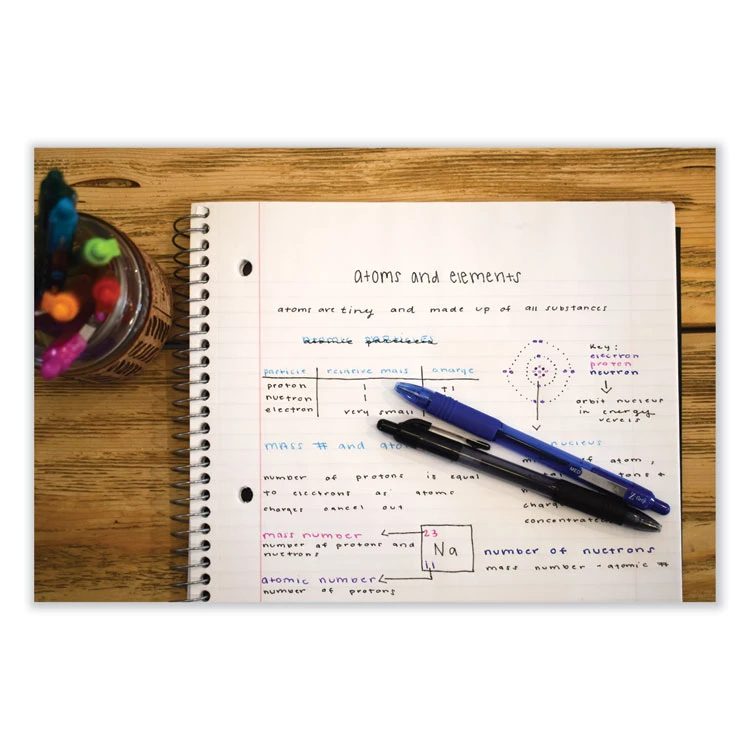 atoms and elements
atoms are tiny and made up of all substances
particle relative mass charge
proton 1 +1
nuetron 1
electron very small
Key:
electron
proton
neutron
orbit nucleus
in energy
mass # and
nucleus
of atom,
number of protons is equal
to electrons as atoms
charges cancel out
mass number
number of protons and
nuetrons
23
Na
11
atomic number
number of protons
number of nuetrons
mass number - atomic #
MED
Z-Grip